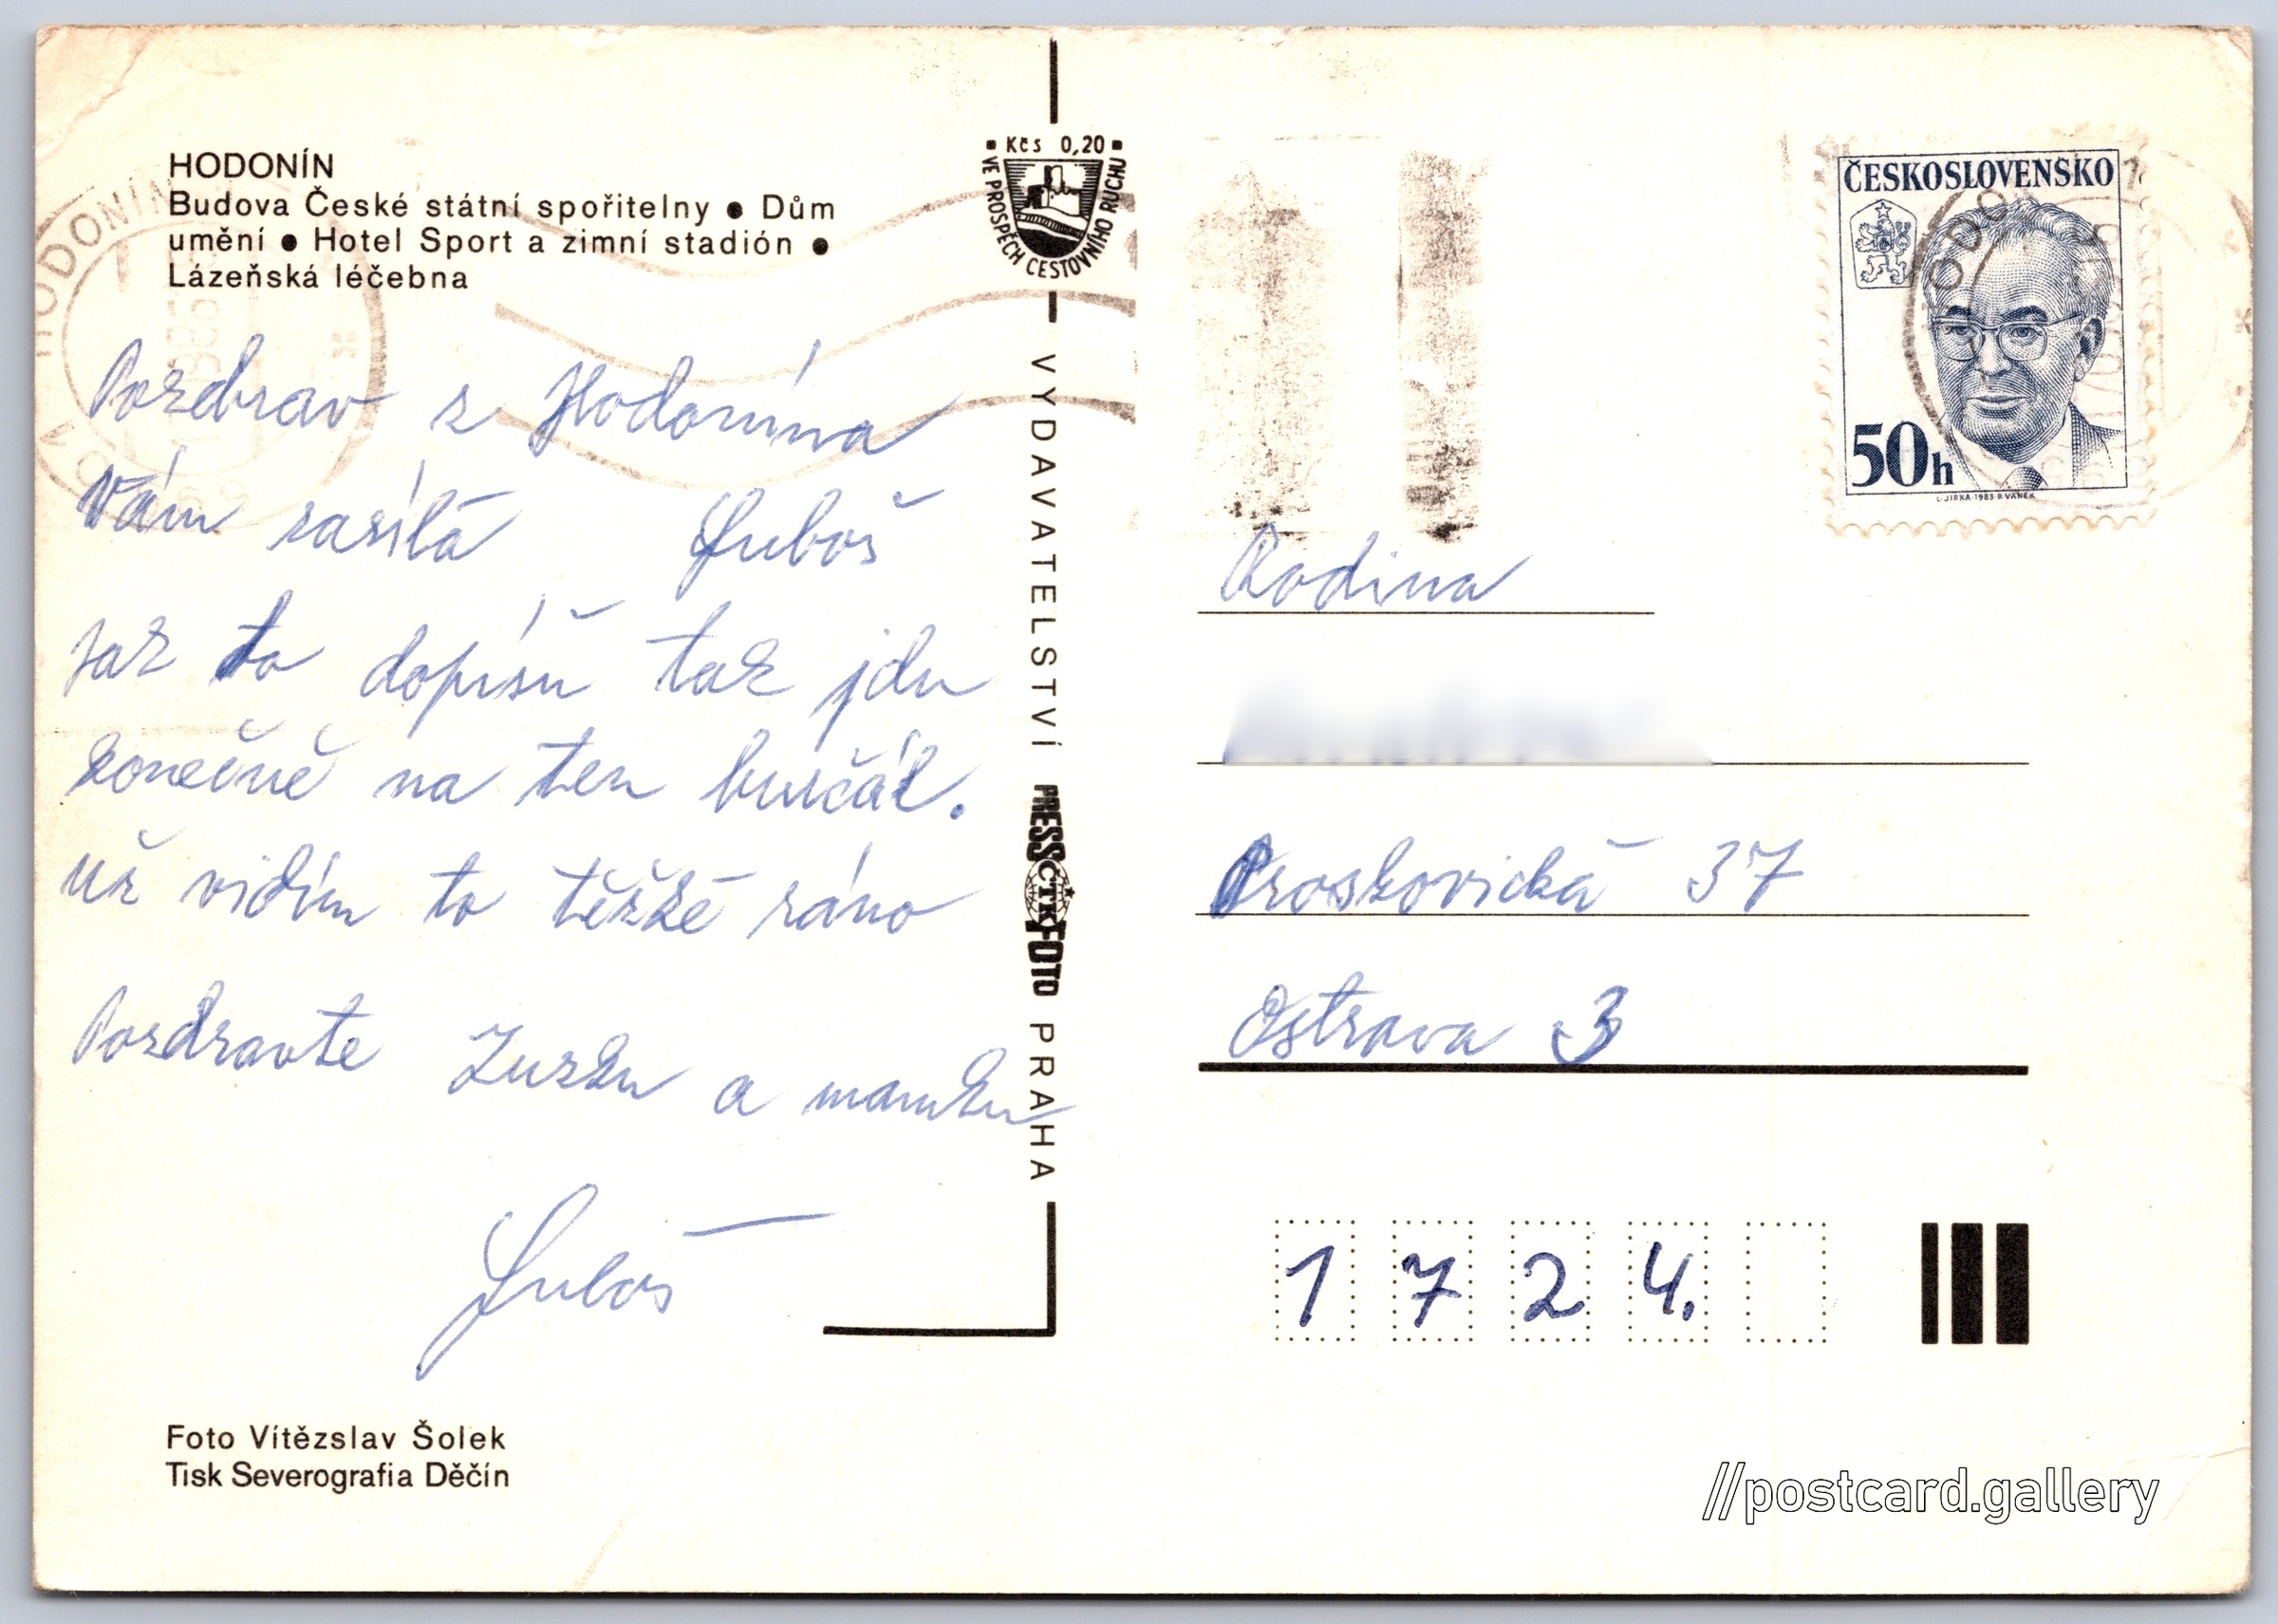 HODONÍN
Budova České státní spořitelny • Dům
umění • Hotel Sport a zimní stadión •
Lázeňská léčebna
Pozdrav z Hodonína
Vám zasílá Luboš
jak to dopíšu tak jdu
konečně na ten burčák.
Už vidím to těžké ráno
Pozdravte Zuzku a mamku
Luboš
Foto Vítězslav Šolek
Tisk Severografia Děčín
Kčs 0,20
VE PROSPĚCH CESTOVNÍHO RUCHU
VYDAVATELSTVÍ PRESSFOTO PRAHA
ČTK
HODONÍN
1985
ČESKOSLOVENSKO
50h
L. JIRKA • 1983 • R. VANĚK
Rodina
Proskovická 37
Ostrava 3
1 7 2 4.
//postcard.gallery